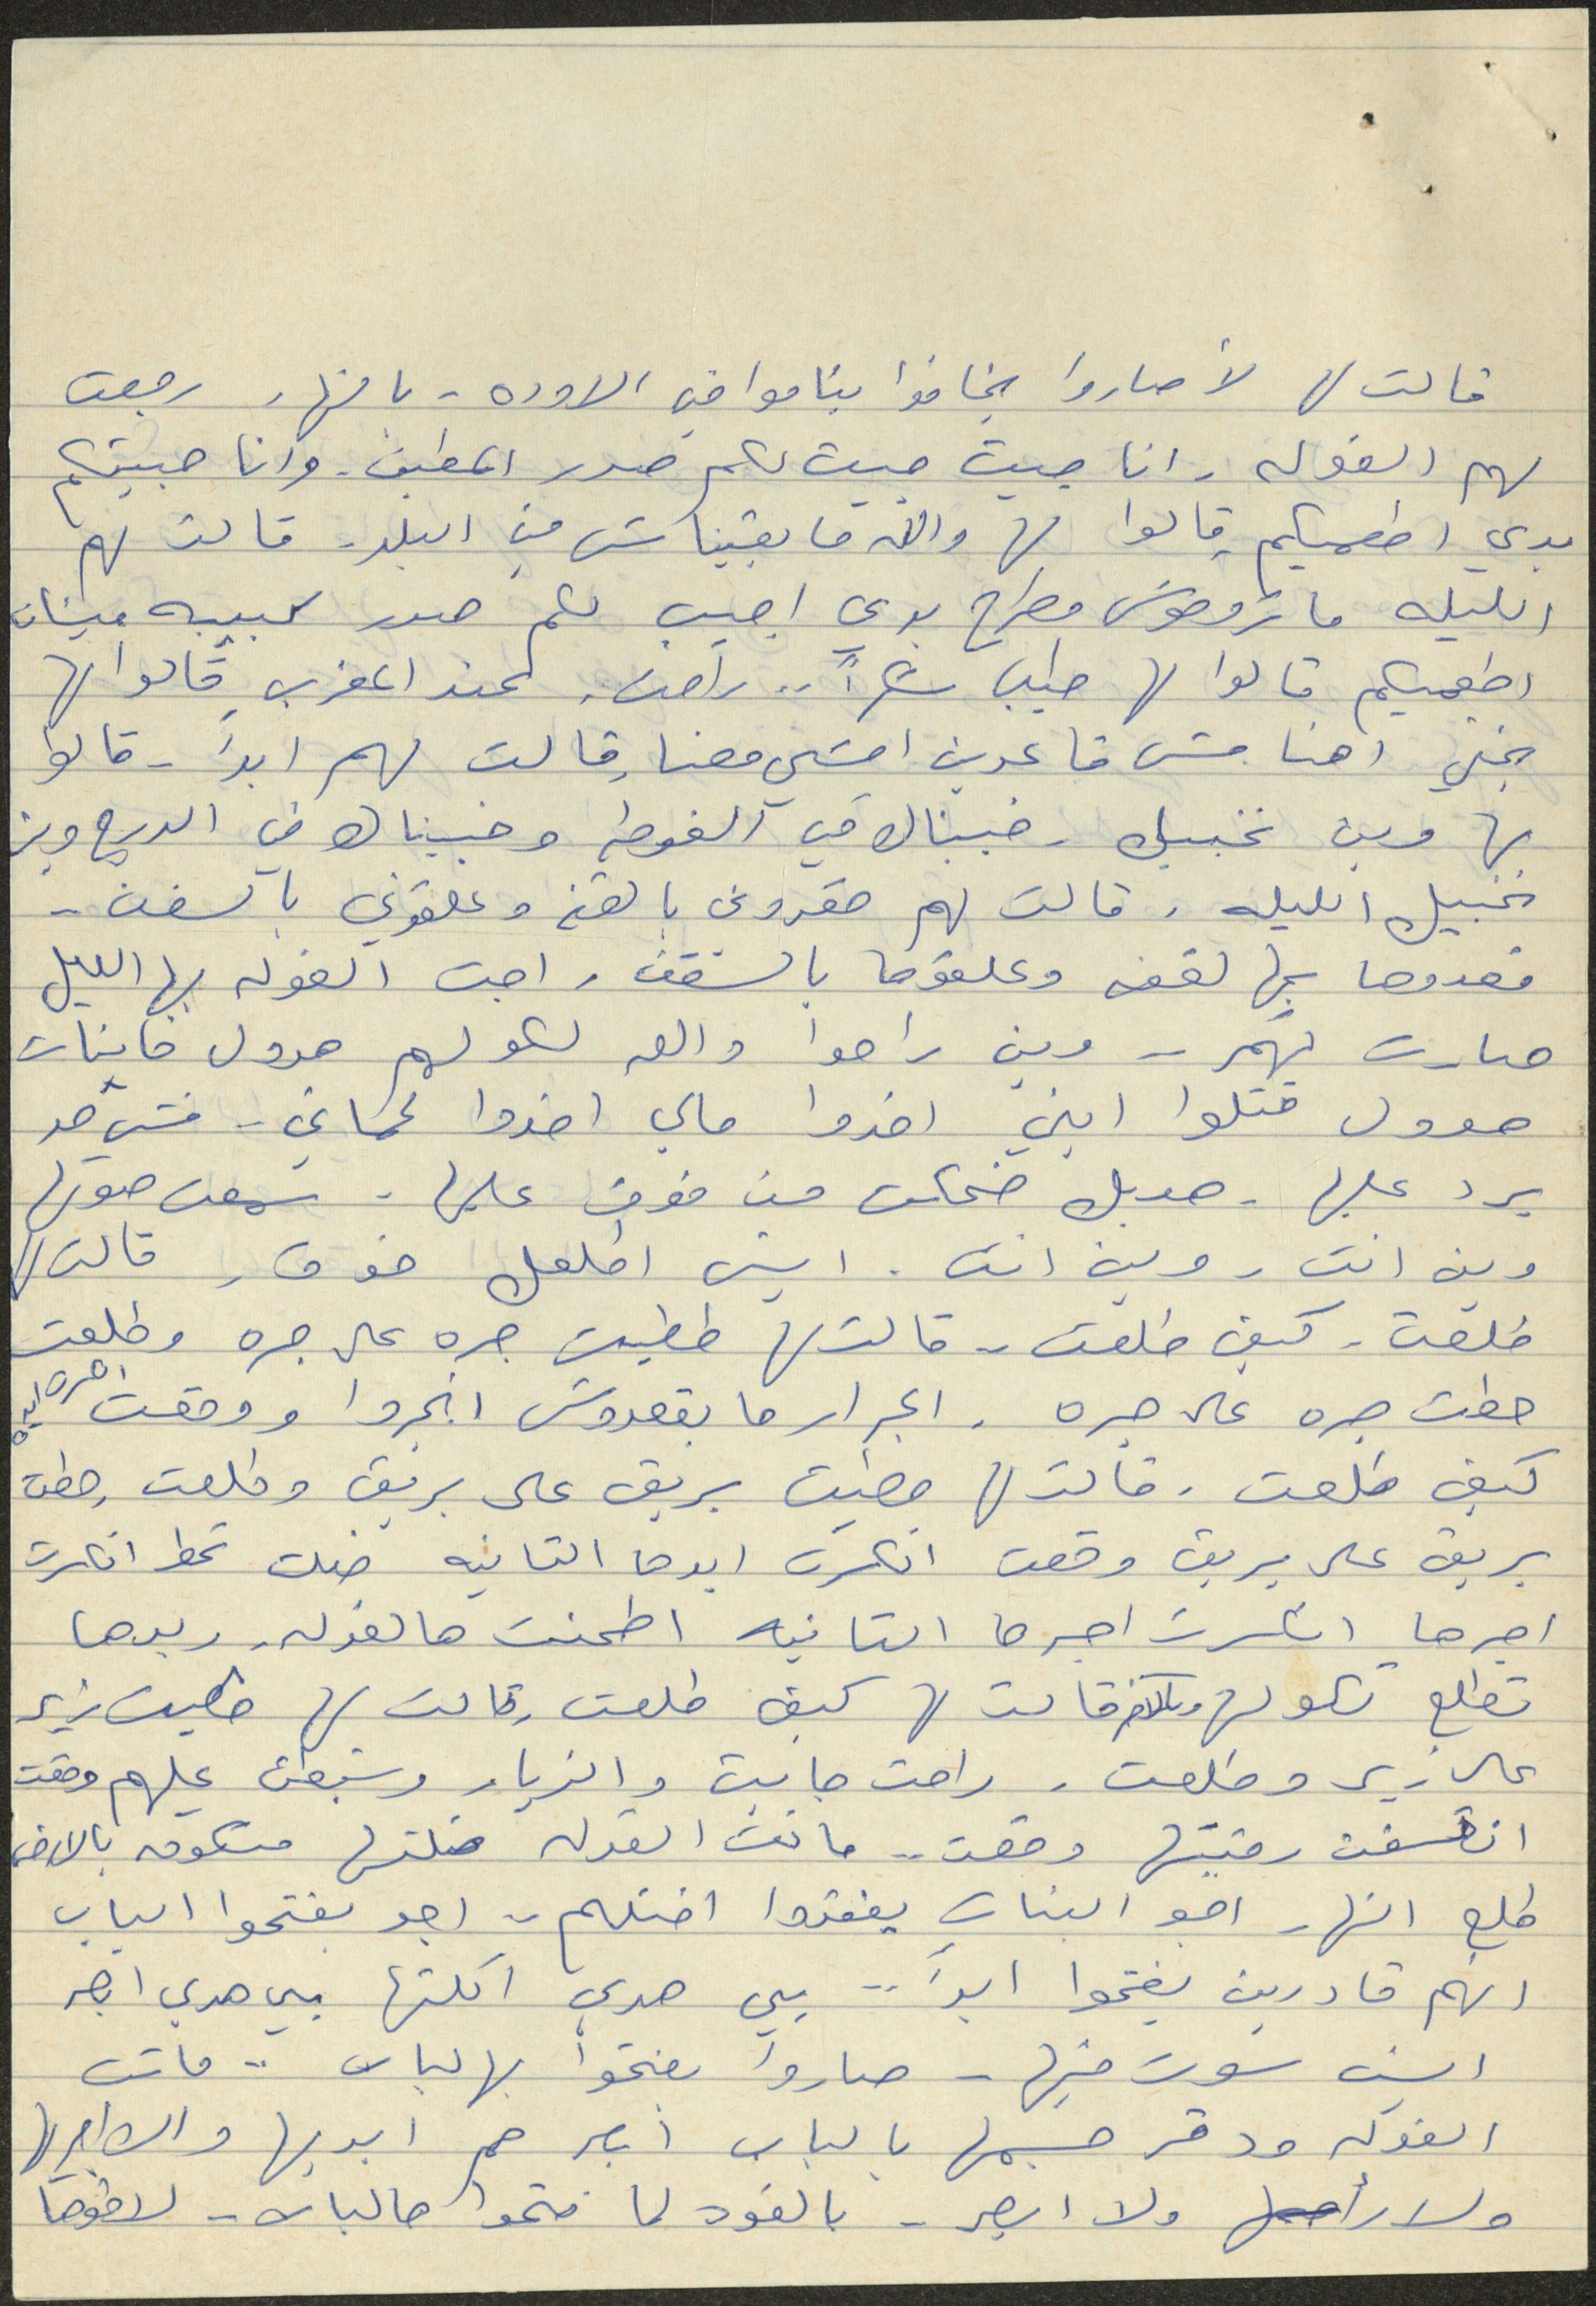 قالت لها لأ صاروا بخافوا يناموا في الاوده - بالنهار رجعت
لهم الغوله - انا جيت جبيت لكم قدور المطبق - وانا حبيتكم
بدي اطعميكم قالوا لها والله ما بقيناش في البلد - قالت لهم
الليله ما تروحوش مطرح بدي اجيب لكم صدور كبيبه مينشان
اطعميكم قالوا لها طيب شكراً .. راحت . عند المغرب قالوا لها
يختي احنا مش قاعدين امشي معنا قالت لهم ابداً - قالوا
لها وين نخبيك - خبيناك في الغوطه وخبيناك في الدرج وين
نخبيك الليله . قالت لهم حقدوني بالقفه وعلقوني بالسقف -
قعدوها بهالقفه وعلقوها بالسقف . اجت الغوله بهالليل
صارت تهمر - وين راحوا والله لكولهم هدول خاينات
هدول قتلوا ابني اخدوا مالي اخدوا لحماتي - فش حد
يرد عليها - هديك ضحكت من فوق عليها - سمعت صوتها
وين انت - وين انت . ايش اطلعك فوق - قالت لها
طلعت - كيف طلعت - قالت لها حطيت جره على جره وطلعت
حطت جره على جره . الجرار ما بقعدوش انجروا ووقعت انكسرت ايدها
كيف طلعت . قالت لها حطيت بريق على بريق وطلعت . حطت
بريق على بريق وقعت انكسرت ايدها التانيه ضلت تحط انكسرت
اجرها انكسرت اجرها التانيه اطحنت هالغوله - وبدها
تطلع تكولها قالت لها كيف طلعت . قالت لها حطيت زير
على زير وطلعت . راحت جابت والزيار وشبطت عليهم وقعت
انقسفت رقبتها وقعت .. ماتت الغوله ضلتها متكومه بالارض
طلع النهار اجو البنات يفقدوا اختهم - اجو يفتحوا الباب
انهم قادرين يفتحوا ابداً .. يي هدي اكلتها يي هدي ابصر
ايش سوت فيها - صاروا يفتحوا بهالباب .. ماتت
الغوله ودقر جسمها بالباب ابصر هم ايديها والا اجريها
ولا رأسها ولا ابصر - بالقوه لما فتحوا هالباب - لاقوها